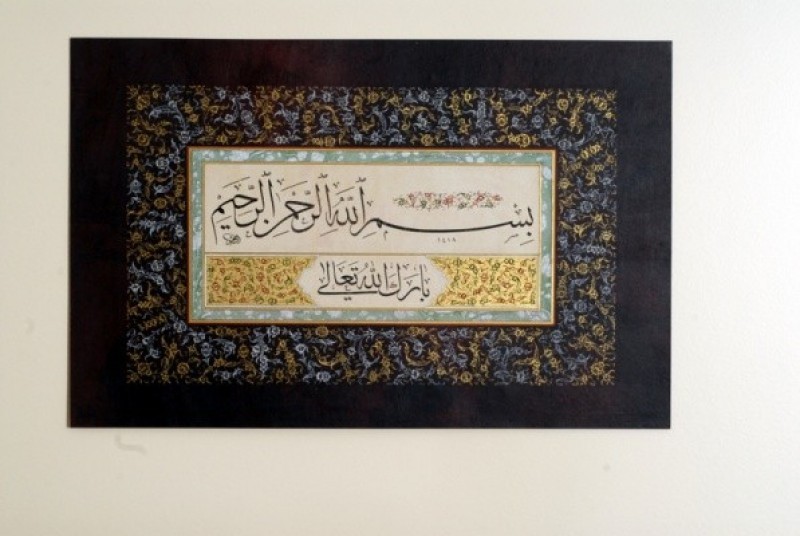 بِسْمِ اللَّهِ الرَّحْمَنِ الرَّحِيمِ
١٤١٩
بَارَكَ اللهُ تَعَالَى